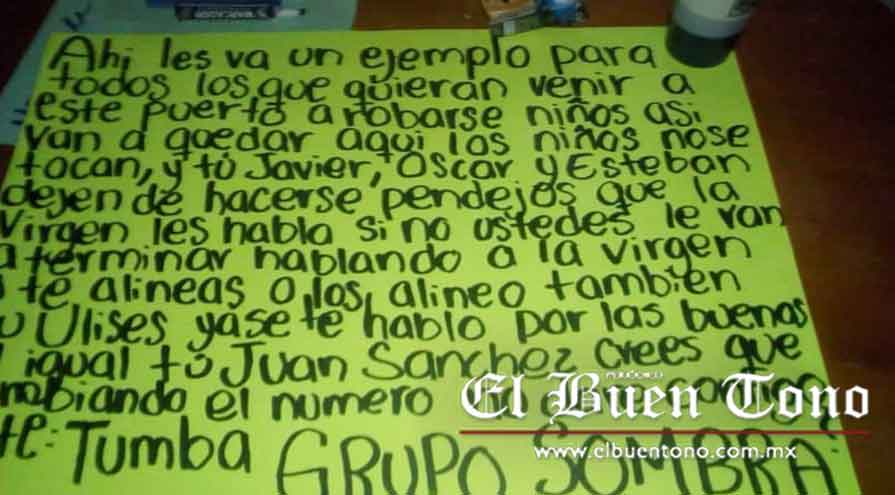 MARCADOR
Ahi les va un ejemplo para
todos los que quieran venir a
este puerto a robarse niños asi
van a quedar aqui los niños nose
tocan, y tú Javier, Oscar y Esteban
dejen de hacerse pendejos que la
Virgen les habla si no ustedes le van
a terminar hablando a la virgen
o te alineas o los alineo también
Ulises ya se te hablo por las buenas
igual tú Juan Sanchez crees que
mbiando el numero
te: Tumba GRUPO SOMBRA
PERIÓDICO
El Buen Tono
www.elbuentono.com.mx